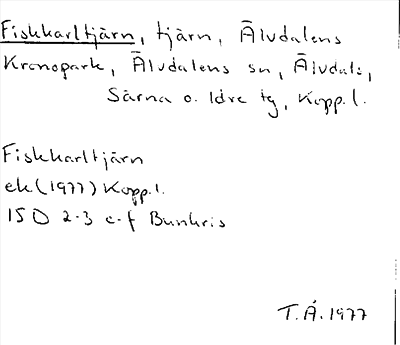 Fiskkarltjärn, tjärn, Älvdalens
Kronopark, Älvdalens sn, Älvdals,
Särna o. Idre tg, Kopp.l.
Fiskkarltjärn
ek (1977) Kopp.l.
15 D 2-3 e-f Bunkris
T.Å. 1977